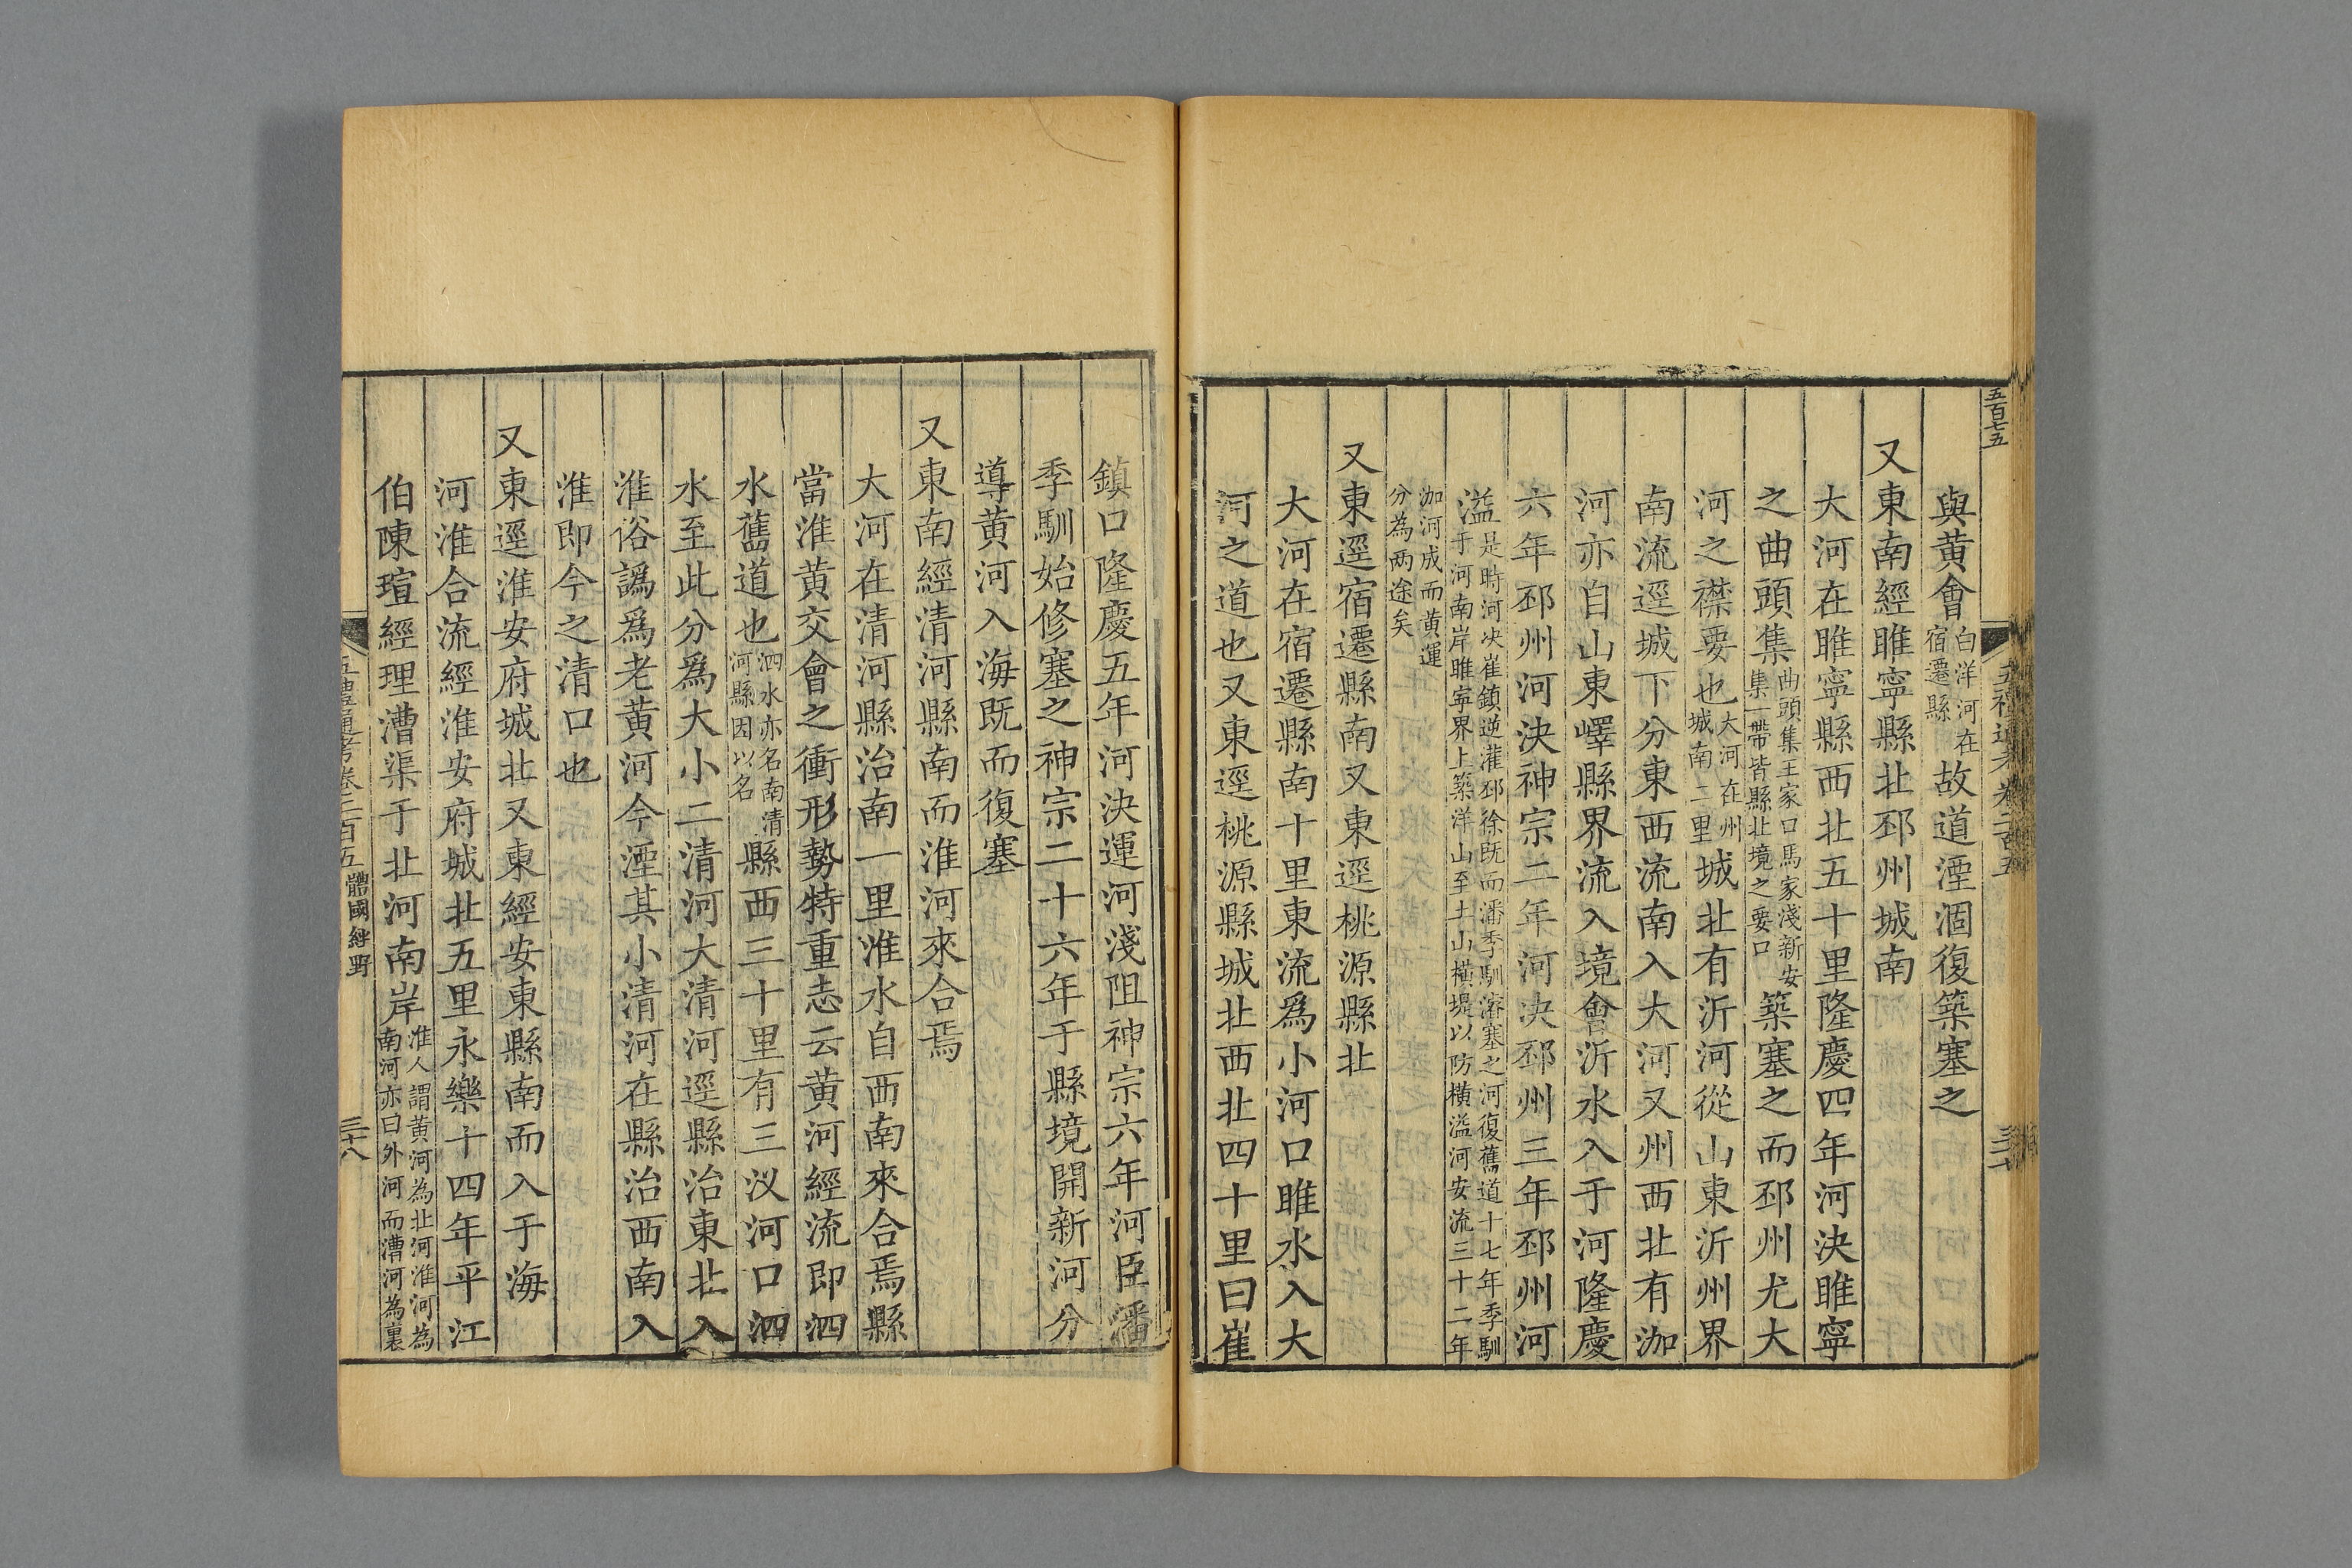 五百七五
與黄會白洋河在宿遷縣故道湮涸復築塞之
又東南經睢寧縣北邳州城南
大河在睢寧縣西北五十里隆慶四年河決睢寧
之曲頭集曲頭集王家口馬家淺新安集一帶皆縣北境之要口築塞之而邳州尤大
河之襟要也大河在州城南二里城北有沂河從山東沂州界
南流逕城下分東西流南入大河又州西北有泇
河亦自山東嶧縣界流入境會沂水入于河隆慶
六年邳州河決神宗二年河決邳州三年邳州河
溢是時河决崔鎮逆灌邳徐既而潘季馴濬塞之河復舊道十七年季馴于河南岸睢寧界上築洋山至土山橫堤以防橫溢河安流三十二年
泇河成而黄運分為两途矣
又東逕宿遷縣南又東逕桃源縣北
大河在宿遷縣南十里東流爲小河口睢水入大
河之道也又東逕桃源縣城北西北四十里曰崔
鎮口隆慶五年河決運河淺阻神宗六年河臣潘
季馴始修塞之神宗二十六年于縣境開新河分
導黄河入海既而復塞
又東南經清河縣南而淮河來合焉
大河在清河縣治南一里淮水自西南來合焉縣
當淮黄交會之衝形勢特重志云黄河經流即泗
水舊道也泗水亦名南清河縣因以名縣西三十里有三汊河口泗
水至此分爲大小二清河大清河逕縣治東北入
淮俗譌爲老黄河今湮其小清河在縣治西南入
淮即今之清口也
又東逕淮安府城北又東經安東縣南而入于海
河淮合流經淮安府城北五里永樂十四年平江
伯陳瑄經理漕渠于北河南岸淮人謂黄河為北河淮河為南河亦曰外河而漕河為裏
五禮通考卷二百五 體國經野 三十八